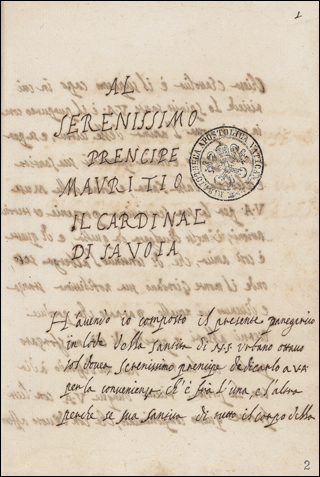 1
AL
SERENISSIMO
PRENCIPE
MAVRITIO
IL CARDINAL
DI SAVOIA
BIBLIOTHECA APOSTOLICA VATICANA
Havendo io composto il presente panegirico
in lode della santità di N.S. Urbano ottavo
hò voluto, serenissimo prencipe dedicarlo a V.A.
per la convenienza, ch'è frà l'una, e l'altra
perche se sua santità di tutto il corpo della
2